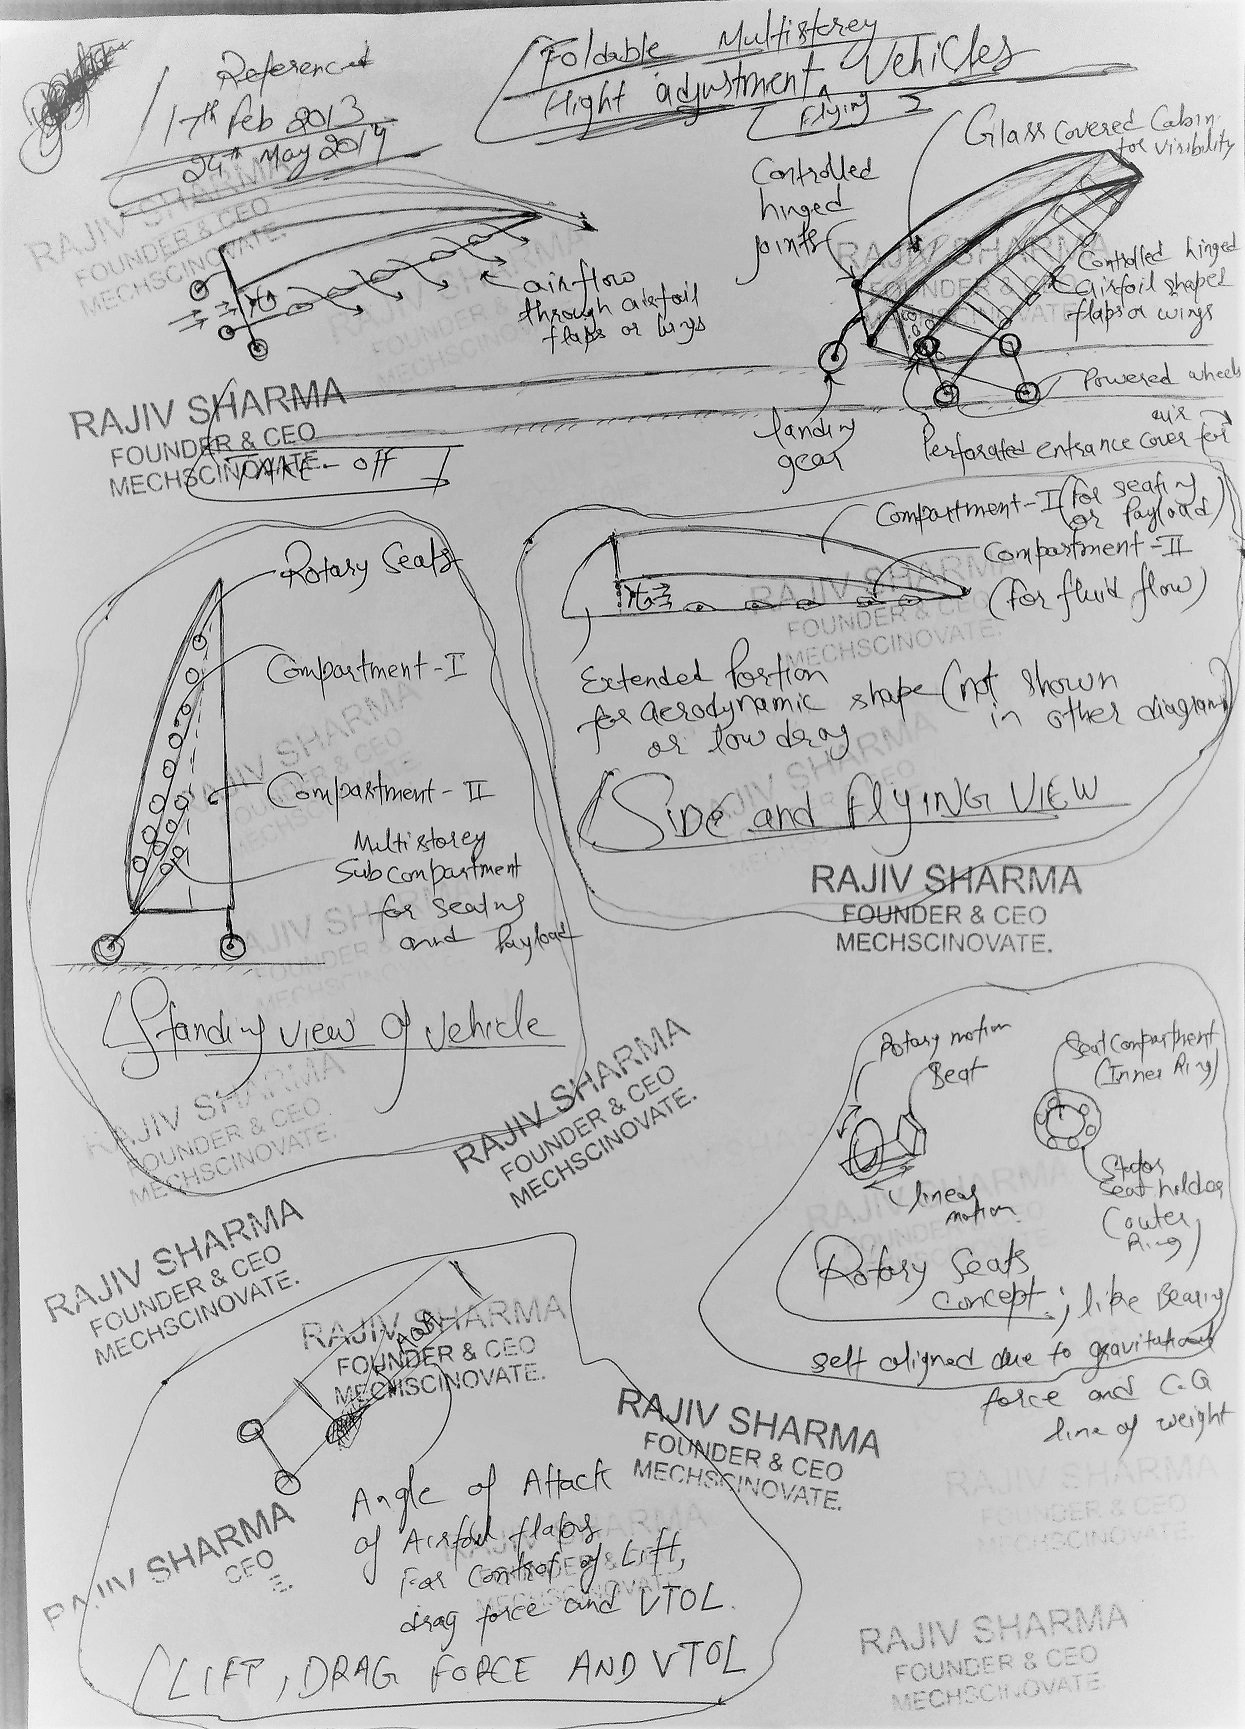 Referenced
17th Feb 2013
24th May 2014
Foldable Multistorey
Hight adjustment Vehicles
Flying
Glass covered Cabin
for visibility
Controlled
hinged
joints
Controlled hinged
airfoil shaped
flaps or wings
airflow
through airfoil
flaps or wings
Powered wheels
landing
gear
Perforated entrance cover for
air
RAJIV SHARMA
FOUNDER & CEO
MECHSCINOVATE.
TAKE-off
Rotary Seats
Compartment-I
Compartment-II
Multistorey
Subcompartment
for seating
and Payload
Standing view of vehicle
Compartment-I (for seating
or Payload)
Compartment-II
(for fluid flow)
Extended Portion
for aerodynamic shape (not shown
or low drag in other diagram)
SIDE and FLYING VIEW
RAJIV SHARMA
FOUNDER & CEO
MECHSCINOVATE.
RAJIV SHARMA
FOUNDER & CEO
MECHSCINOVATE.
Rotary motion
Seat
linear
motion
Seat Compartment
(Inner Ring)
Stator
Seat holder
(outer
Ring)
Rotary Seats
concept; like Bearing
self aligned due to gravitational
force and C.G
line of weight
RAJIV SHARMA
FOUNDER & CEO
MECHSCINOVATE.
RAJIV SHARMA
FOUNDER & CEO
MECHSCINOVATE.
AOA
RAJIV SHARMA
FOUNDER & CEO
MECHSCINOVATE.
Angle of Attack
of Airfoil flaps
For Control of Lift,
drag force and VTOL.
LIFT, DRAG FORCE AND VTOL
SHARMA
CEO
RAJIV SHARMA
FOUNDER & CEO
MECHSCINOVATE.